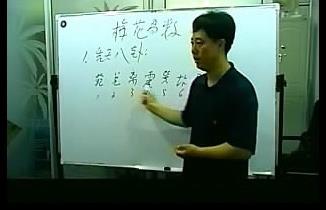 梅花易数
1. 先天八卦:
乾 兑 离 震 巽 坎
1 2 3 4 5 6